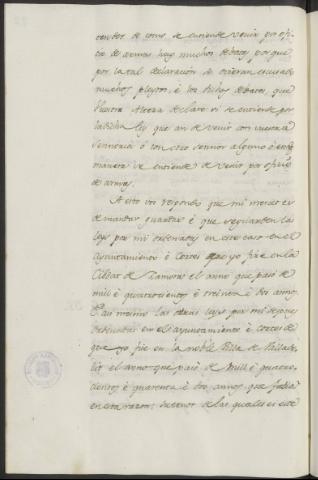 tender de como se entiende venir por ofi-
cio de armas hay muchos debates porque
por la tal declaración se evitarán escusados
muchos pleytos é los dichos debates, que
Vuestra Alteza declare si se entiende por
la dicha ley que an de venir con vuestra
Sennoria ó con otro sennor alguno ó en que
manera se entiende de venir por oficio
de armas.
A esto vos respondo que mi merced es
de mandar guardar é que se guarden las
leys por mi ordenadas en este caso en el
Ayuntamiento é Cortes que yo fize en la
Cibdat de Zamora el anno que pasó de
mill é quatrocientos é treinta é dos annos.
E asi mesmo las otras leys por mi despues
ordenadas en el ayuntamiento é cortes
que yo fize en la noble Villa de Vallado-
lit el anno que pasó de mill é quatro-
cientos é quarenta é dos annos que fabla
en esta razon: su tenor de las quales es este